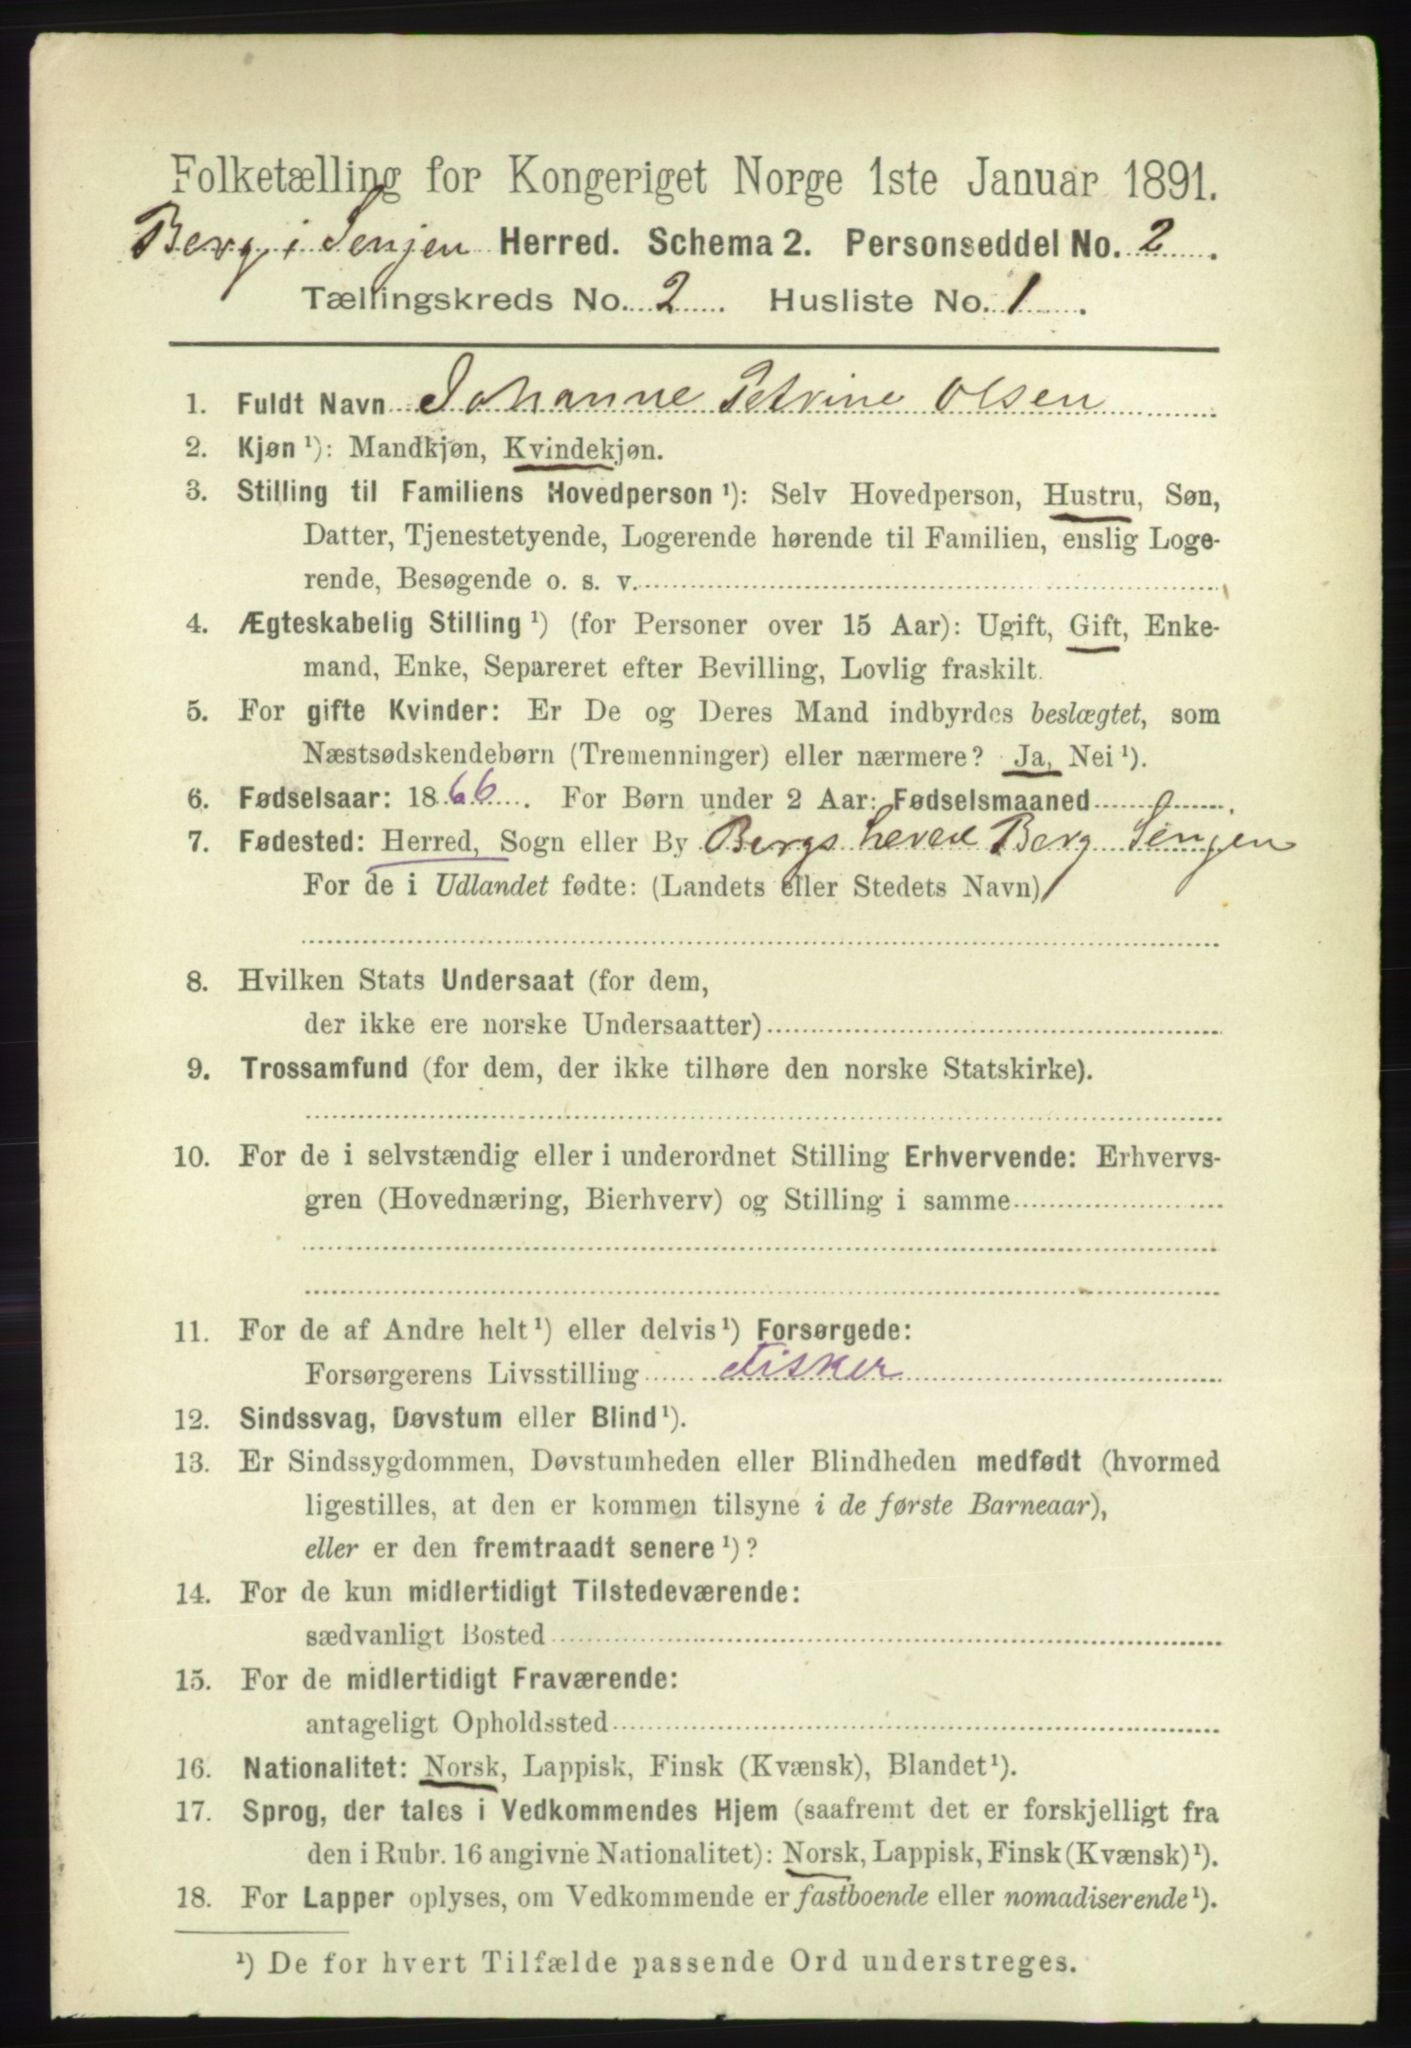 Folketælling for Kongeriget Norge 1ste Januar 1891.
Berg i Senjen Herred. Schema 2. Personseddel No. 2.
Tællingskreds No. 2 Husliste No. 1.
1. Fuldt Navn Johanne Petrine Olsen
2. Kjøn ¹): Mandkjøn, Kvindekjøn.
3. Stilling til Familiens Hovedperson ¹): Selv Hovedperson, Hustru, Søn,
Datter, Tjenestetyende, Logerende hørende til Familien, enslig Loge-
rende, Besøgende o. s. v.
4. Ægteskabelig Stilling ¹) (for Personer over 15 Aar): Ugift, Gift, Enke-
mand, Enke, Separeret efter Bevilling, Lovlig fraskilt.
5. For gifte Kvinder: Er De og Deres Mand indbyrdes beslægtet, som
Næstsødskendebørn (Tremenninger) eller nærmere? Ja, Nei ¹).
6. Fødselsaar: 1866. For Børn under 2 Aar: Fødselsmaaned
7. Fødested: Herred, Sogn eller By Bergs hered Berg Senjen
For de i Udlandet fødte: (Landets eller Stedets Navn)
8. Hvilken Stats Undersaat (for dem,
der ikke ere norske Undersaatter)
9. Trossamfund (for dem, der ikke tilhøre den norske Statskirke).
10. For de i selvstændig eller i underordnet Stilling Erhvervende: Erhvervs-
gren (Hovednæring, Bierhverv) og Stilling i samme
11. For de af Andre helt ¹) eller delvis ¹) Forsørgede:
Forsørgerens Livsstilling Fisker
12. Sindssvag, Døvstum eller Blind ¹).
13. Er Sindssygdommen, Døvstumheden eller Blindheden medfødt (hvormed
ligestilles, at den er kommen tilsyne i de første Barneaar),
eller er den fremtraadt senere ¹)?
14. For de kun midlertidigt Tilstedeværende:
sædvanligt Bosted
15. For de midlertidigt Fraværende:
antageligt Opholdssted
16. Nationalitet: Norsk, Lappisk, Finsk (Kvænsk), Blandet ¹).
17. Sprog, der tales i Vedkommendes Hjem (saafremt det er forskjelligt fra
den i Rubr. 16 angivne Nationalitet): Norsk, Lappisk, Finsk (Kvænsk) ¹).
18. For Lapper oplyses, om Vedkommende er fastboende eller nomadiserende ¹).
¹) De for hvert Tilfælde passende Ord understreges.